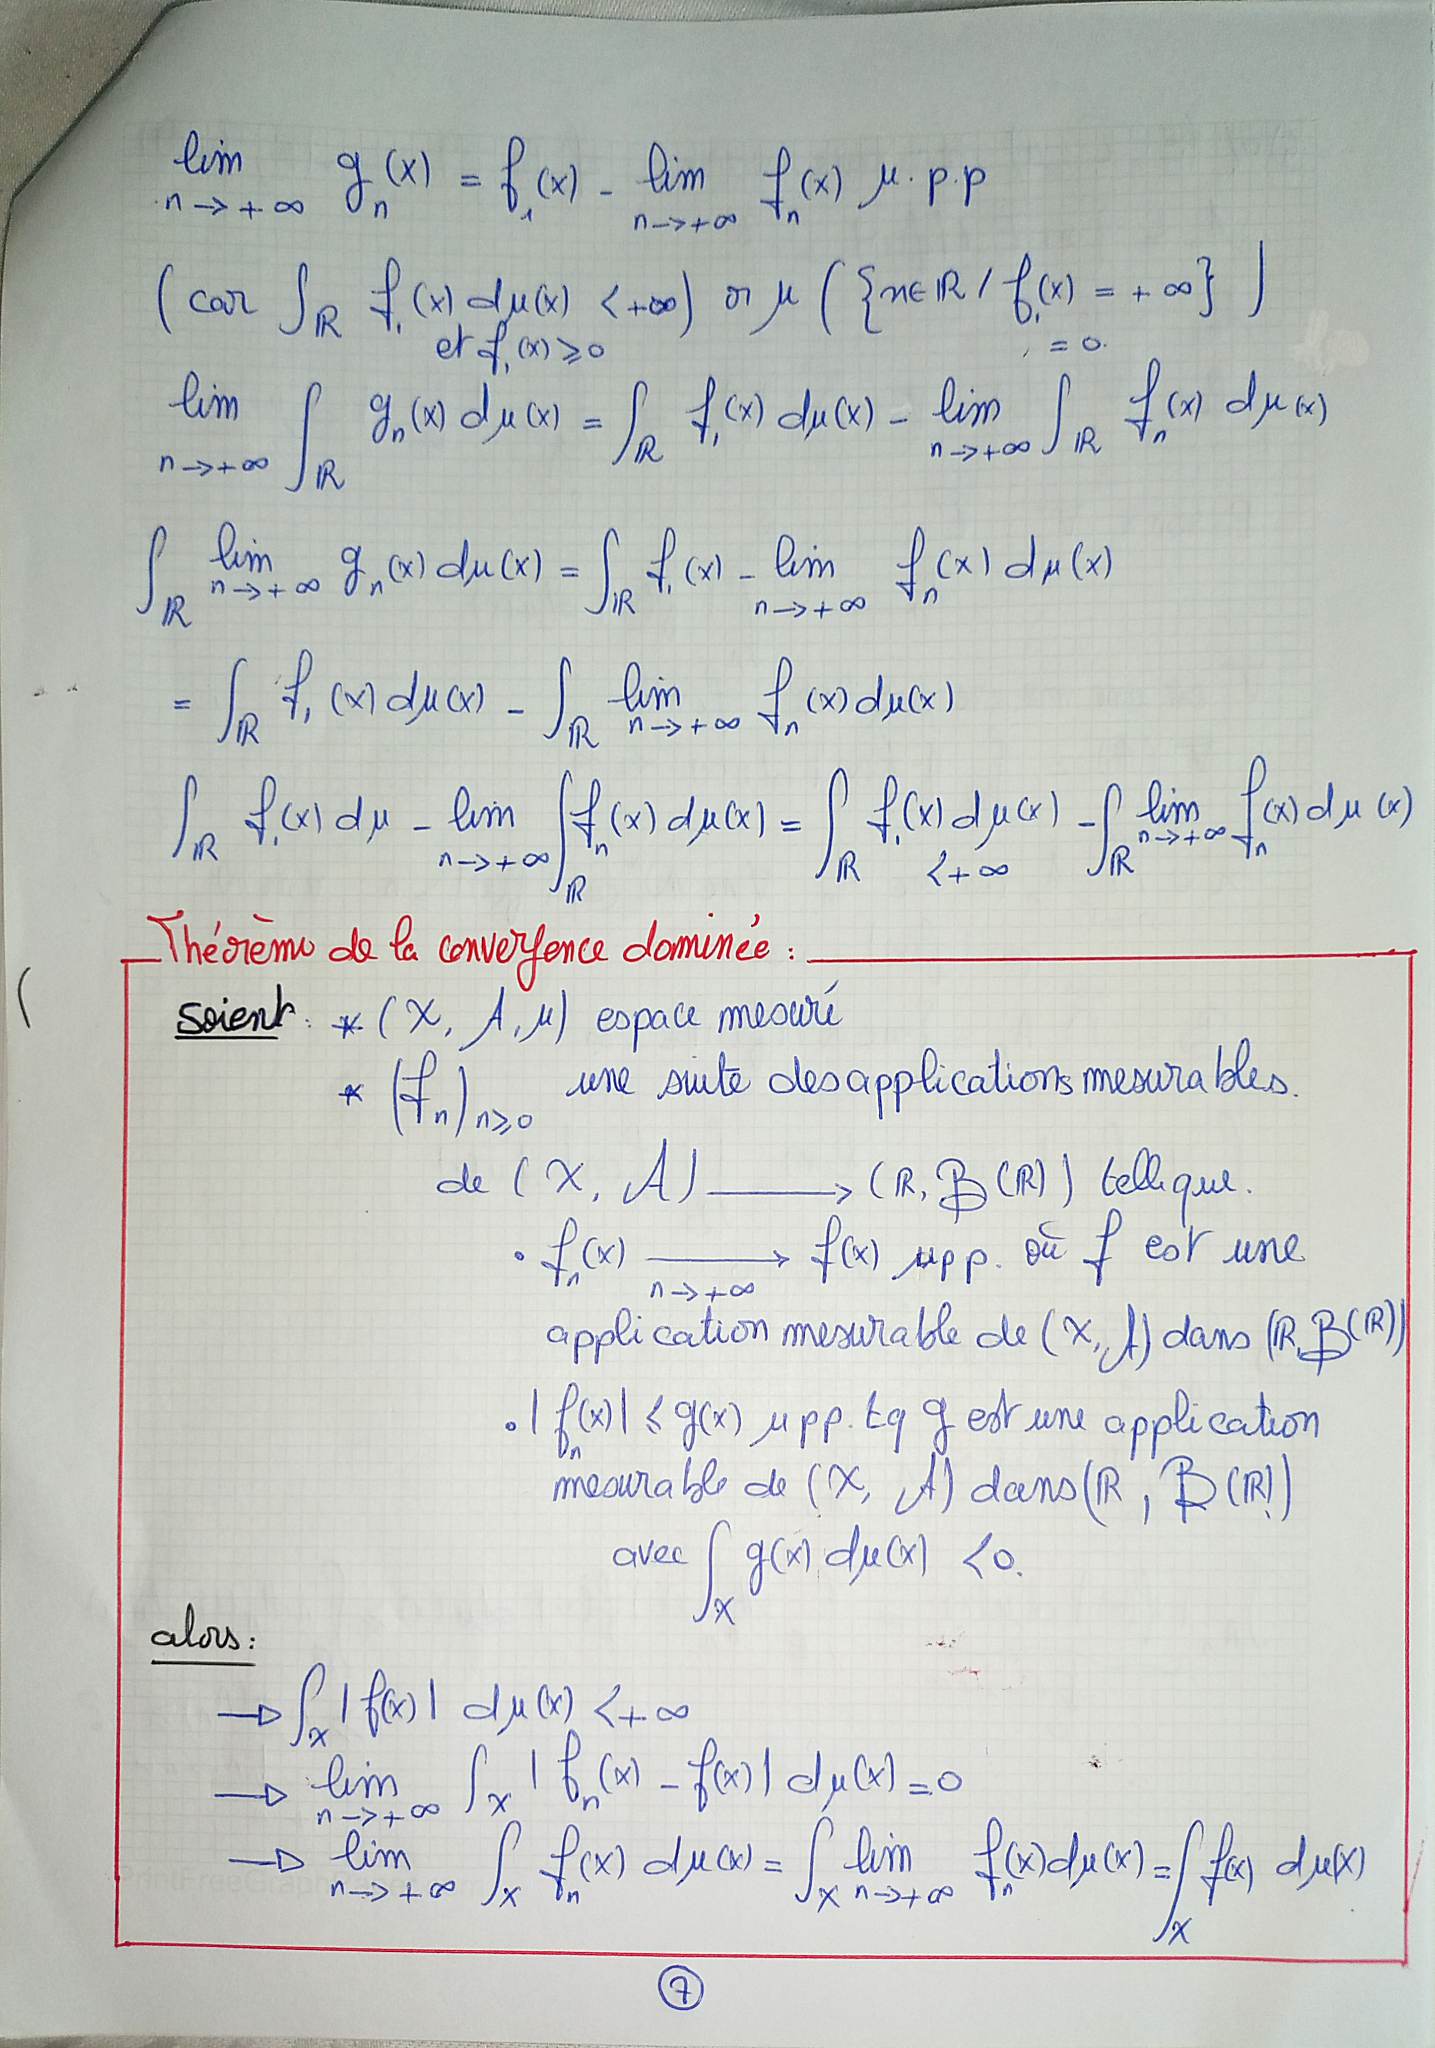 lim_{n→+∞} g_n(x) = f_1(x) - lim_{n→+∞} f_n(x) μ.p.p
(car ∫_ℝ f_1(x) dμ(x) <+∞) or μ({x∈ℝ / f_1(x) = +∞})
et f_1(x) ⩾ 0 = 0.
lim_{n→+∞} ∫_ℝ g_n(x) dμ(x) = ∫_ℝ f_1(x) dμ(x) - lim_{n→+∞} ∫_ℝ f_n(x) dμ(x)
∫_ℝ lim_{n→+∞} g_n(x) dμ(x) = ∫_ℝ f_1(x) - lim_{n→+∞} f_n(x) dμ(x)
= ∫_ℝ f_1(x) dμ(x) - ∫_ℝ lim_{n→+∞} f_n(x) dμ(x)
∫_ℝ f_1(x) dμ - lim_{n→+∞} ∫_ℝ f_n(x) dμ(x) = ∫_ℝ f_1(x) dμ(x) - ∫_ℝ lim_{n→+∞} f_n(x) dμ(x)
<+∞
Théorème de la convergence dominée :
soient : * (X, A, μ) espace mesuré
* (f_n)_{n⩾0} une suite des applications mesurables.
de (X, A) → (ℝ, B(ℝ)) telle que.
• f_n(x) →_{n→+∞} f(x) μpp. où f est une
application mesurable de (X, A) dans (ℝ, B(ℝ))
• |f_n(x)| ⩽ g(x) μpp. tq g est une application
mesurable de (X, A) dans (ℝ, B(ℝ))
avec ∫_X g(x) dμ(x) <0.
alors :
→ ∫_X |f(x)| dμ(x) <+∞
→ lim_{n→+∞} ∫_X |f_n(x) - f(x)| dμ(x) = 0
→ lim_{n→+∞} ∫_X f_n(x) dμ(x) = ∫_X lim_{n→+∞} f_n(x) dμ(x) = ∫_X f(x) dμ(x)
7